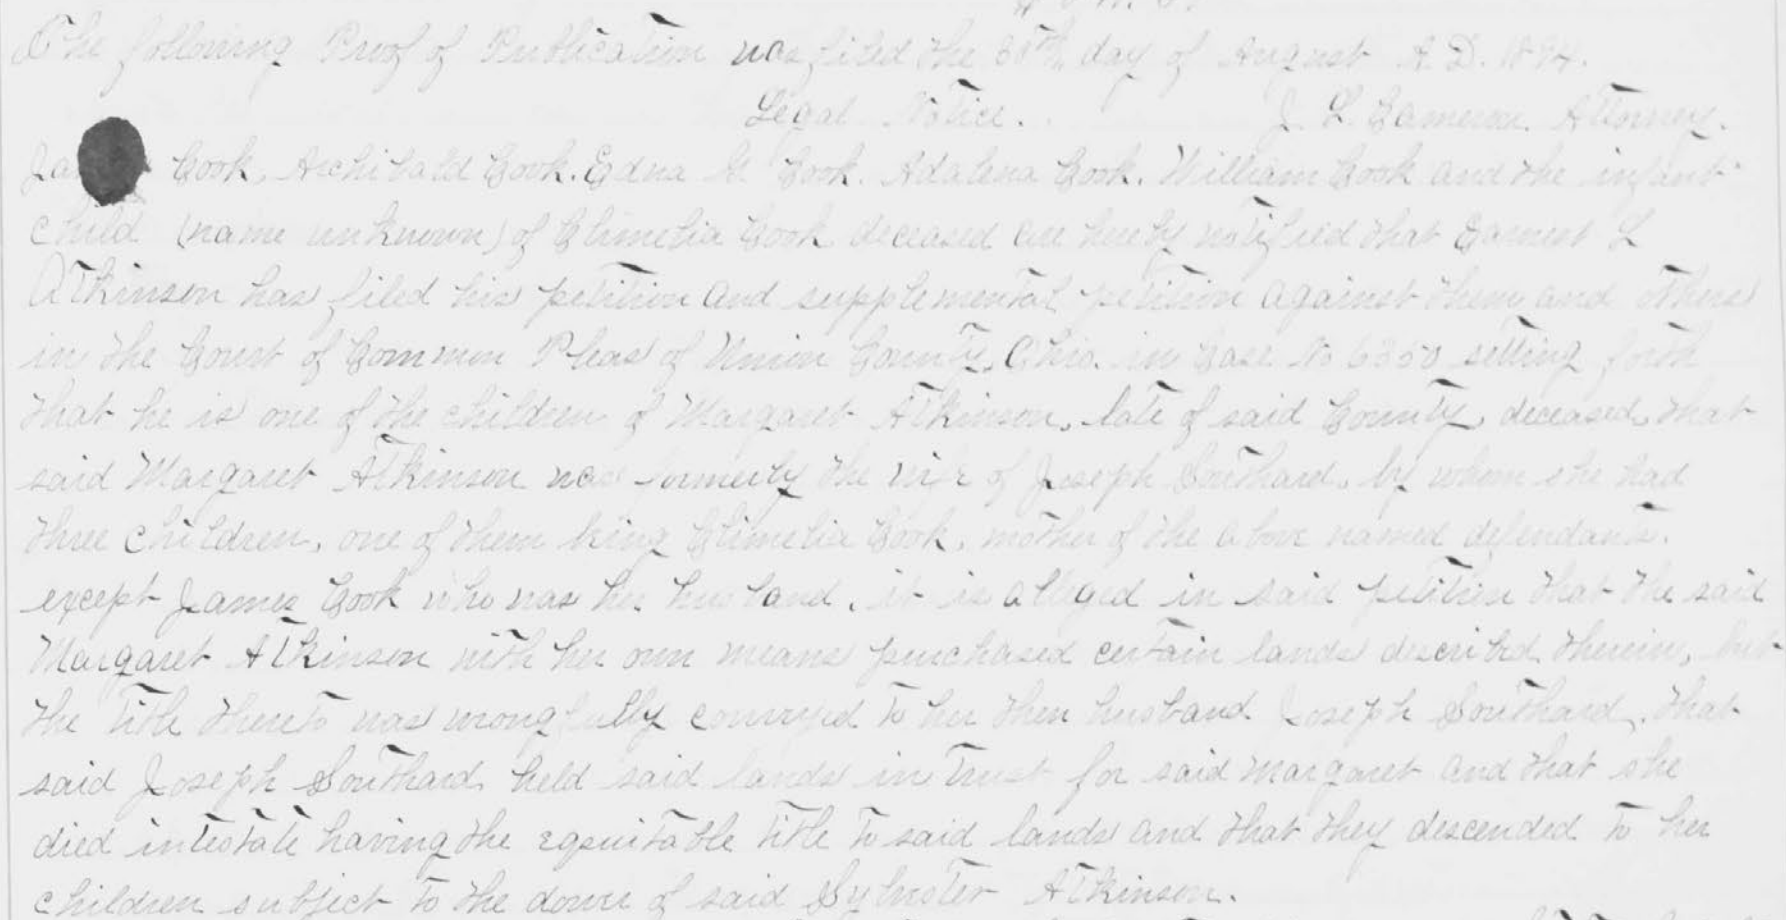 The following Proof of Publication was filed the 30th day of August A.D. 1894.
Legal Notice. J. L. Cameron Attorney.
Ja Cook, Archibald Cook. Edna M Cook. Adalena Cook. William Cook and the infant
child (name unknown) of Climelia Cook deceased are hereby notified that Earnest L
Atkinson has filed his petition and supplemental petition against them and others
in the Court of Common Pleas of Union County, Ohio. in Case No 6350 setting forth
that he is one of the children of Margaret Atkinson, late of said County, deceased, that
said Margaret Atkinson was formerly the wife of Joseph Southard, by whom she had
three children, one of them being Climelia Cook, mother of the above named defendants.
except James Cook who was her husband. it is alleged in said petition that the said
Margaret Atkinson with her own means purchased certain lands described therein, but
the title thereto was wrongfully conveyed to her then husband Joseph Southard. that
said Joseph Southard held said lands in trust for said Margaret and that she
died intestate having the equitable title to said lands and that they descended to her
children subject to the dower of said Sylvester Atkinson.